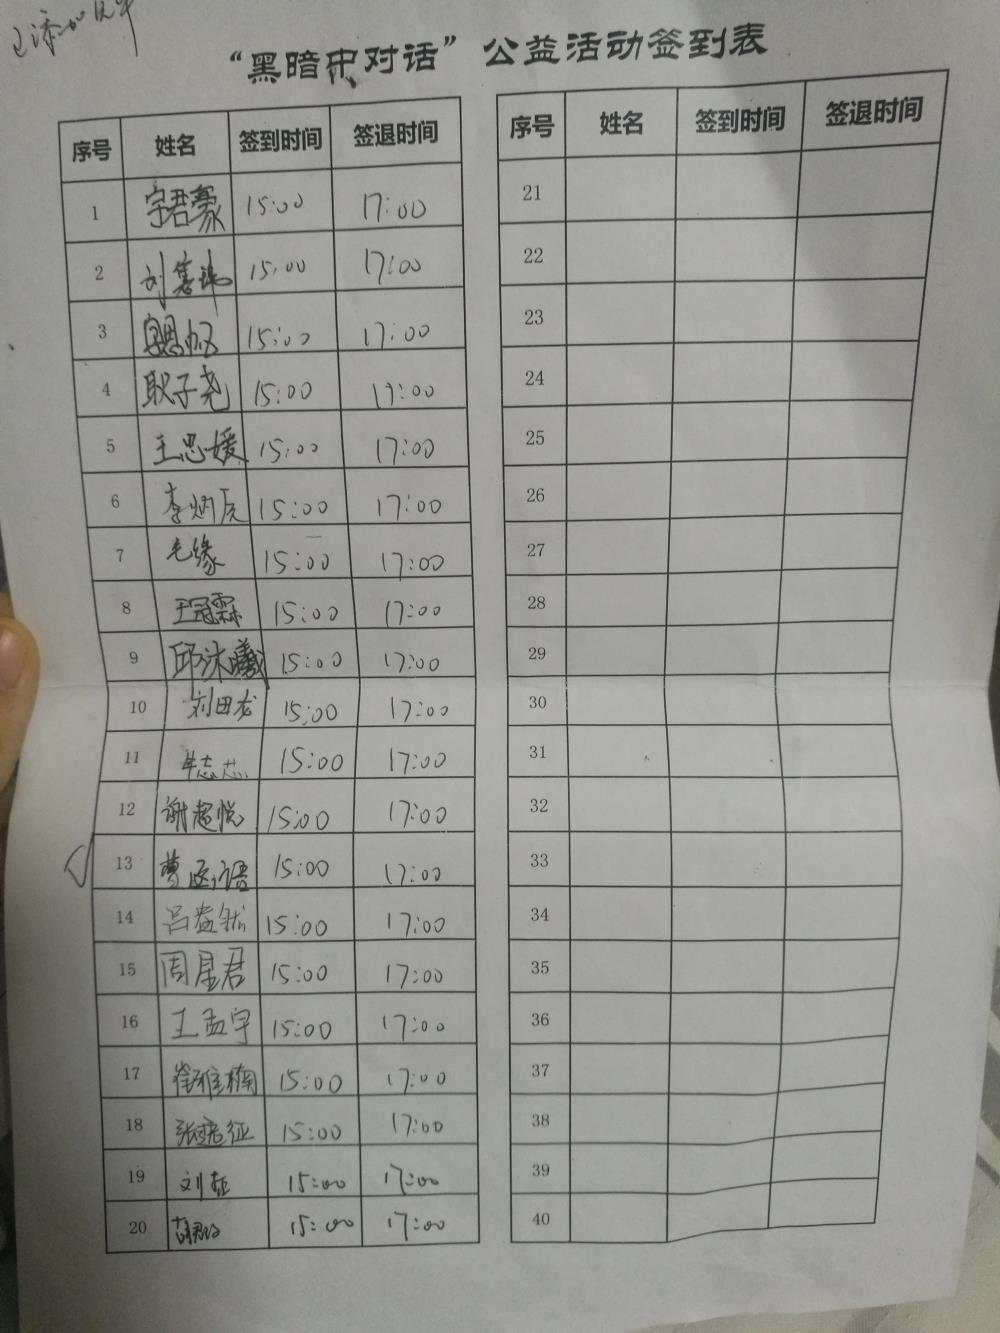 已添加
“黑暗中对话”公益活动签到表
序号 姓名 签到时间 签退时间
1 宇君豪 15:00 17:00
2 刘 15:00 17:00
3 15:00 17:00
4 耿子尧 15:00 17:00
5 王思媛 15:00 17:00
6 李炳辰 15:00 17:00
7 毛缘 15:00 17:00
8 王冠霖 15:00 17:00
9 邱沐曦 15:00 17:00
10 刘田龙 15:00 17:00
11 牛志芯 15:00 17:00
12 谢超悦 15:00 17:00
13 曹 语 15:00 17:00
14 吕 15:00 17:00
15 周星君 15:00 17:00
16 王孟宇 15:00 17:00
17 楠 15:00 17:00
18 张 征 15:00 17:00
19 刘 15:00 17:00
20 15:00 17:00
序号 姓名 签到时间 签退时间
21
22
23
24
25
26
27
28
29
30
31
32
33
34
35
36
37
38
39
40